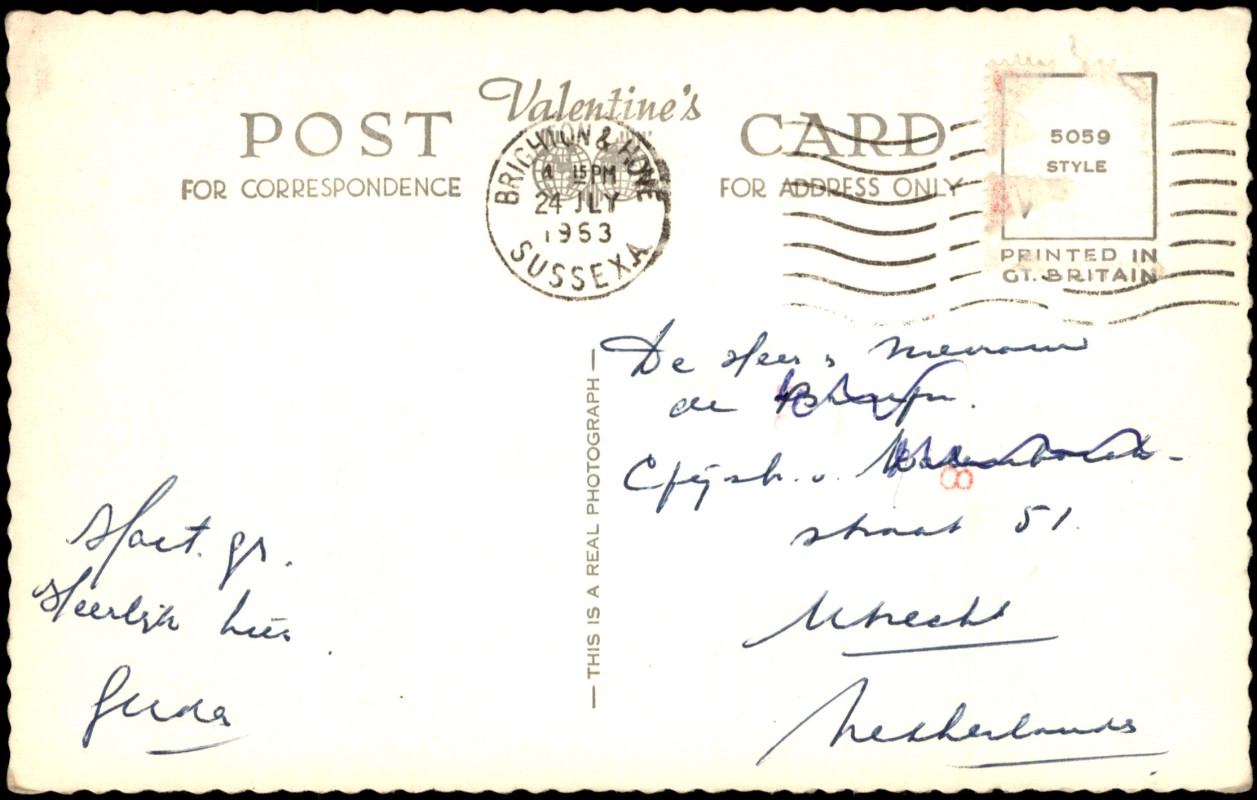 Valentine's
POST CARD
FOR CORRESPONDENCE
FOR ADDRESS ONLY
BRIGHTON & HOVE
15 PM
24 JLY
1953
SUSSEX A
5059
STYLE
PRINTED IN
GT. BRITAIN
— THIS IS A REAL PHOTOGRAPH —
Hart. gr.
Heerlijk hier.
De Heer & Mevrouw
de
straat 51.
Utrecht
Netherlands
8